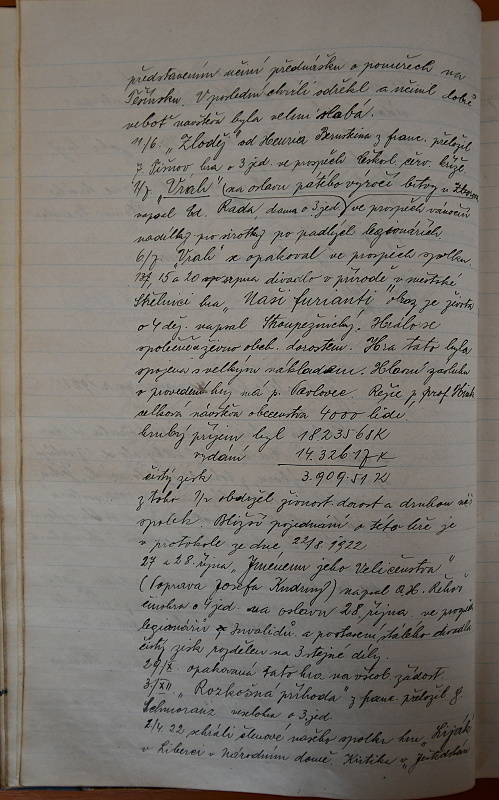 představením učiní přednášku o poměrech na
Těšínsku. V poslední chvíli odřekl a učinil dobře
neboť návštěva byla velení slabá.
11/6. „Zloděj“ od Henria Bernsteina z franc. přeložil
J. hra o 3 jed. ve prospěch českosl. červ. kříže
1/7 „Vrah“ (na oslavu pátého výročí bitvy u
napsal Ed. Rada, drama o 3 jed.) ve prospěch vánoční
nadílky po sirotky po padlých legionářích.
6/7 „Vrah“ se opakoval ve prospěch spolku.
15 a 20 srpna divadlo v přírodě v městské
Střelnici hra „Naši furianti“ obraz ze života
o 4 děj. napsal Stroupežnický. Hrálo se
společně s živno obch. dorostem. Hra tato byla
spojena s velkým nákladem. Hlavní zásluhu
o provedení hry má p. Pavlovec. Režie p. prof.
celková návštěva obecenstva 4000 lidí
hrubý příjem byl 18235.68 K
vydání 14.326.17 K
čistý zisk 3.909.51 K
z toho 1/2 obdržel živnost. dorost a druhou náš
spolek. Bližší pojednání o této hře je
v protokole ze dne 22/8 1922
27 a 28. října „Jménem jeho Veličenstva“
(poprava Josefa Kudrny) napsal
činohra o 4 jed. na oslavu 28 října ve prospěch
legionářů, Invalidů a postavení stálého divadla
čistý zisk rozdělen na 3 stejné díly.
29/X opakovaná tato hra na všeob. žádost.
3/XII „Rozkošná příhoda“ z franc. přeložil
veselohra o 3 jed.
2/4 22 sehráli členové našeho spolku hru „Lišák“
v Liberci v Národním domě. Kritika v „